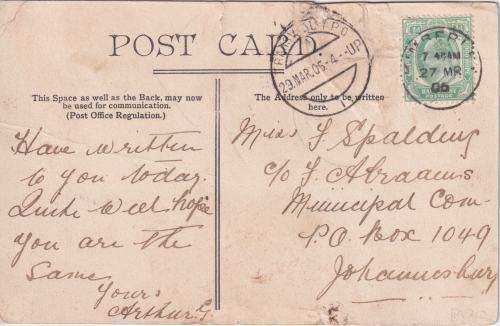 POST CARD.
This Space as well as the Back, may now
be used for communication.
(Post Office Regulation.)
The Address only to be written
here.
29 MAR. 06
27 MR
06
Have written
to you today.
Quite well hope
you are the
Same
Yours
Arthur
Miss Spalding
c/o Abraams
Municipal Com-
P.O. Box 1049
Johannesburg